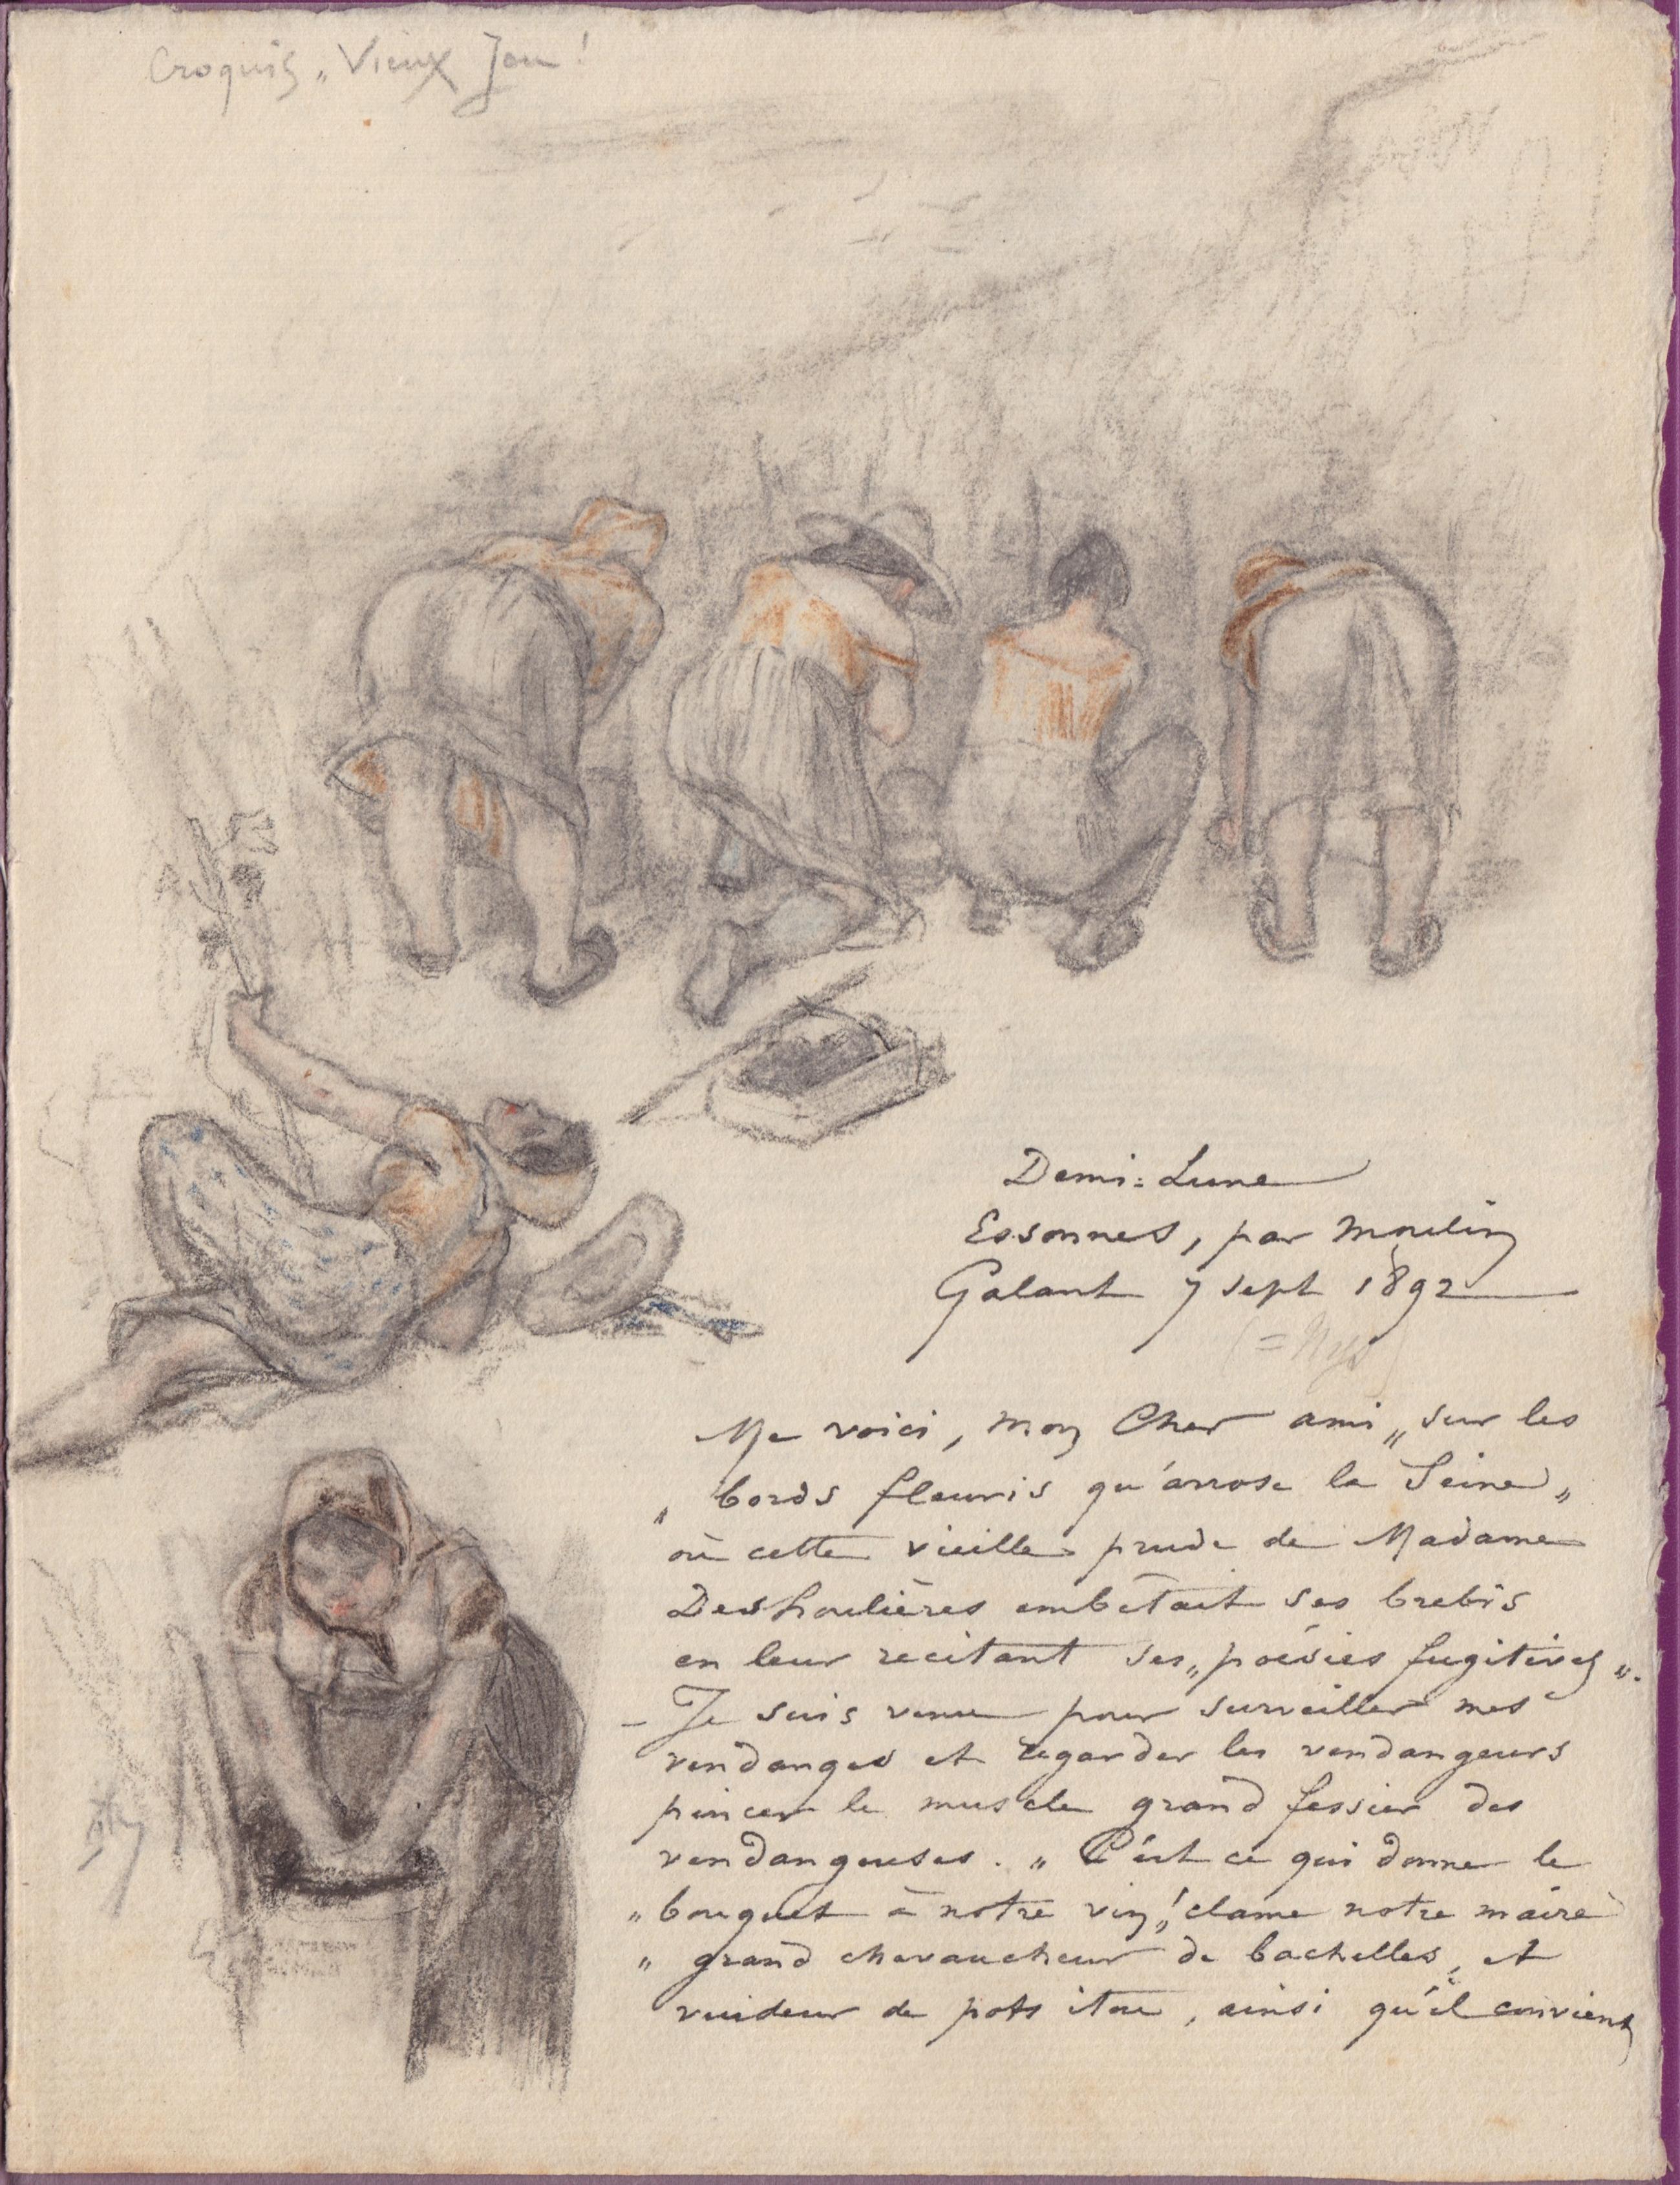 Croquis „ Vieux Jeu !
Demi-Lune
Essonnes, par Moulin
Galant 7 sept 1892
Me voici, mon Cher ami „ sur les
„ bords fleuris qu'arrose la Seine „
où cette vieille prude de Madame
Deshoulières embêtait ses brebis
en leur recitant ses „ poésies fugitives „.
– Je suis venu pour surveiller mes
vendanges et regarder les vendangeurs
pincer le muscle grand fessier des
vendangeuses. „ C'est ce qui donne le
„ bouquet à notre vin „! clame notre maire
„ grand chevaucheur de bachelles, et
vuideur de pots itou, ainsi qu'il convient